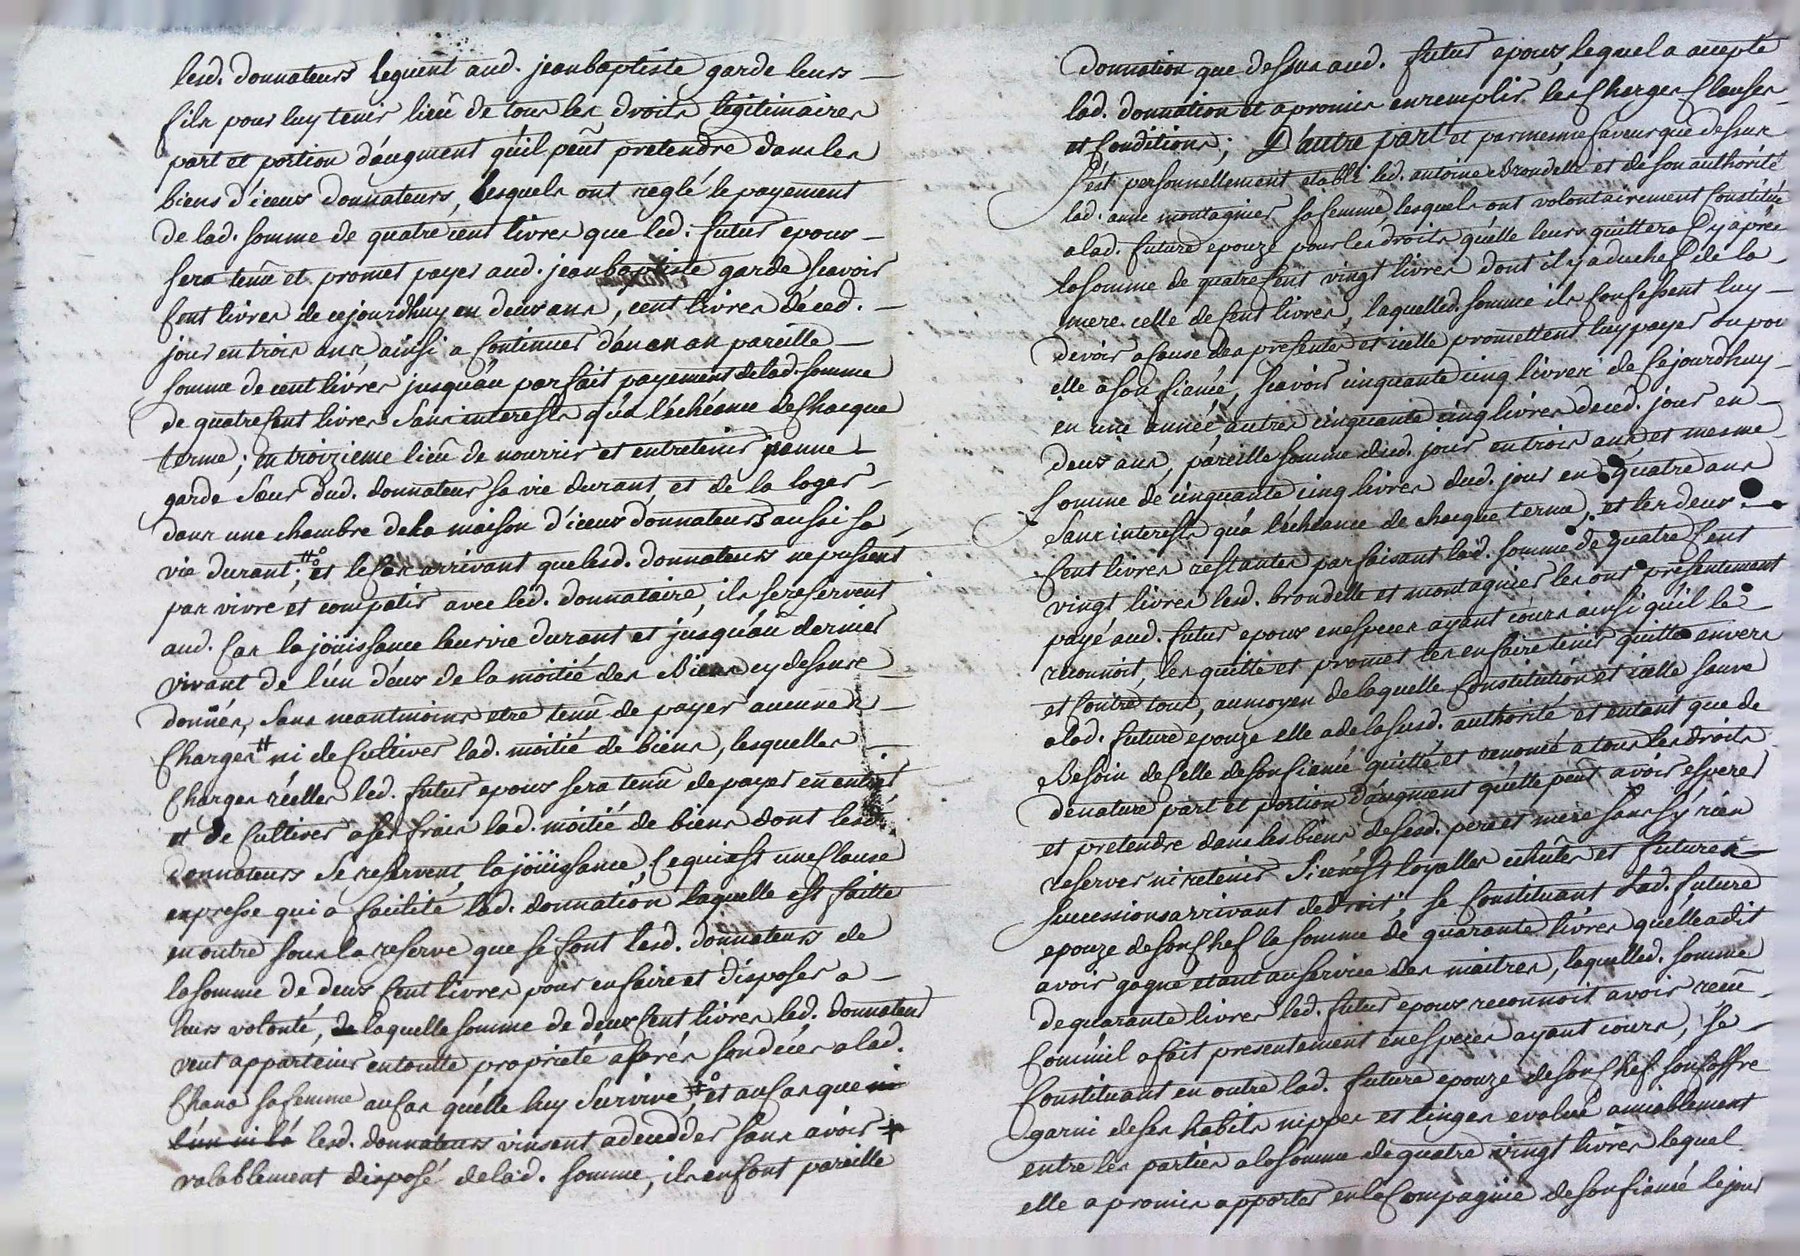 lesd. donnateurs leguent aud. jean baptiste garde leurs
fils pour luy tenir lieu de tous les droits legitimaires
part et portion d'augment qu'il peut pretendre dans les
biens d'iceux donnateurs, lesquels ont reglé le payement
de lad. somme de quatre cent livres que led. futur epoux
sera tenu et promet payer aud. jean baptiste garde scavoir
Cent livres de cejourdhuy en deux ans, cent livres déced.
jour en trois ans ainsi a Continuer d'an en an pareille
somme de cent livres jusqu'au parfait payement de lad. somme
de quatre Cent livres Sans interests qu'a l'echéance de chacque
terme; en troizieme lieu de nourrir et entretenir jeanne
garde Sœur dud. donnateur sa vie durant et de la loger
dans une chambre de la maison d'iceux donnateurs aussi sa
vie durant; et le Cas arrivant que lesd. donnateurs ne pussent
pas vivre et compatir avec led. donnataire, ils se reservent
aud. Cas la joüissance leur vie durant et jusqu'au dernier
vivant de l'un d'eux de la moitié des Biens cy dessus
donnés, Sans neantmoins etre tenu de payer aucunes
Charges # ni de Cultiver lad. moitié de biens, lesquelles
Charges réelles led. futur epoux sera tenu de payer en entier
et de Cultiver a ses frais lad. moitié de biens dont lesd.
donnateurs Se reservent la joüissance, Ce qui est une Clause
expresse qui a facilité lad. donnation laquelle est faitte
en outre sous la reserve que se font lesd. donnateurs de
la somme de deux Cent livres pour en faire et disposer a
leurs volonté, de laquelle somme de deux Cent livres led. donnateur
veut appartenir en toutte proprieté aprés son décés a lad.
Chana sa femme au Cas qu'elle luy Survive #, et au Cas que ni
l'un ni l'a lesd. donnateurs vinsent a decedder sans avoir #
valablement disposé de lad. somme, ils en font pareille
donnation que dessus aud. futur epoux, lequel a accepté
lad. donnation et a promis en remplir les Charges Clauses
et Conditions; D'autre part et par mesme faveur que dessus
S'est personnellement etabli led. antoine Brondelle et de son authorité
lad. anne montagnier sa femme lesquels ont volontairement Constitué
a lad. future epouze pour les droits qu'elle leurs quittera Cy aprés
la somme de quatre Cent vingt livres dont il y a du chef de la
mere celle de Cent livres, laquelled. somme ils Confessent luy
devoir a Cause des presentes et icelle promettent luy payer ou pou
elle a son fiancé, Scavoir cinquante cinq livres de Cejourdhuy
en une année autres cinquante cinq livres deced. jour en
deux ans, pareille somme dud. jour en trois ans et mesme
Somme de cinquante cinq livres dud. jour en quatre ans
Sans interests qu'a l'echéance de chacque terme, et les deux
Cent livres restantes parfaisant lad. somme de quatre Cent
vingt livres lesd. brondelle et montagnier les ont presentement
payé aud. futur epoux en especes ayant cours ainsi qu'il le
reconnoit, les quitte et promet les en faire tenir quitte envers
et Contre tous, au moyen de laquelle Constitution et icelle sauve
a lad. future epouze elle a de la susd. authorité et entant que de
Besoin de Celle de son fiancé quitté et renoncé a tous les droits
de nature part et portion d'augment qu'elle peut avoir esperer
et pretendre dans les biens de sesd. pere et mere sans s'y rien
reserver ni retenir Si ce n'est loyalles echutes et futures
Successions arrivant de droit; Se Constituant Lad. future
epouze de son Chef la somme de quarante livres qu'elle a dit
avoir gagné etant au service des maitres, laquelled. somme
de quarante livres led. futur epoux reconnoit avoir recu
Comme il a fait presentement en especes ayant cours, Se
Constituant en outre lad. future epouze de son Chef son Coffre
garni de ses habits nippes et linges evalué amiablement
entre les parties a la somme de quatre vingt livres lequel
elle a promis apporter en la Compagnie de son fiancé le jour